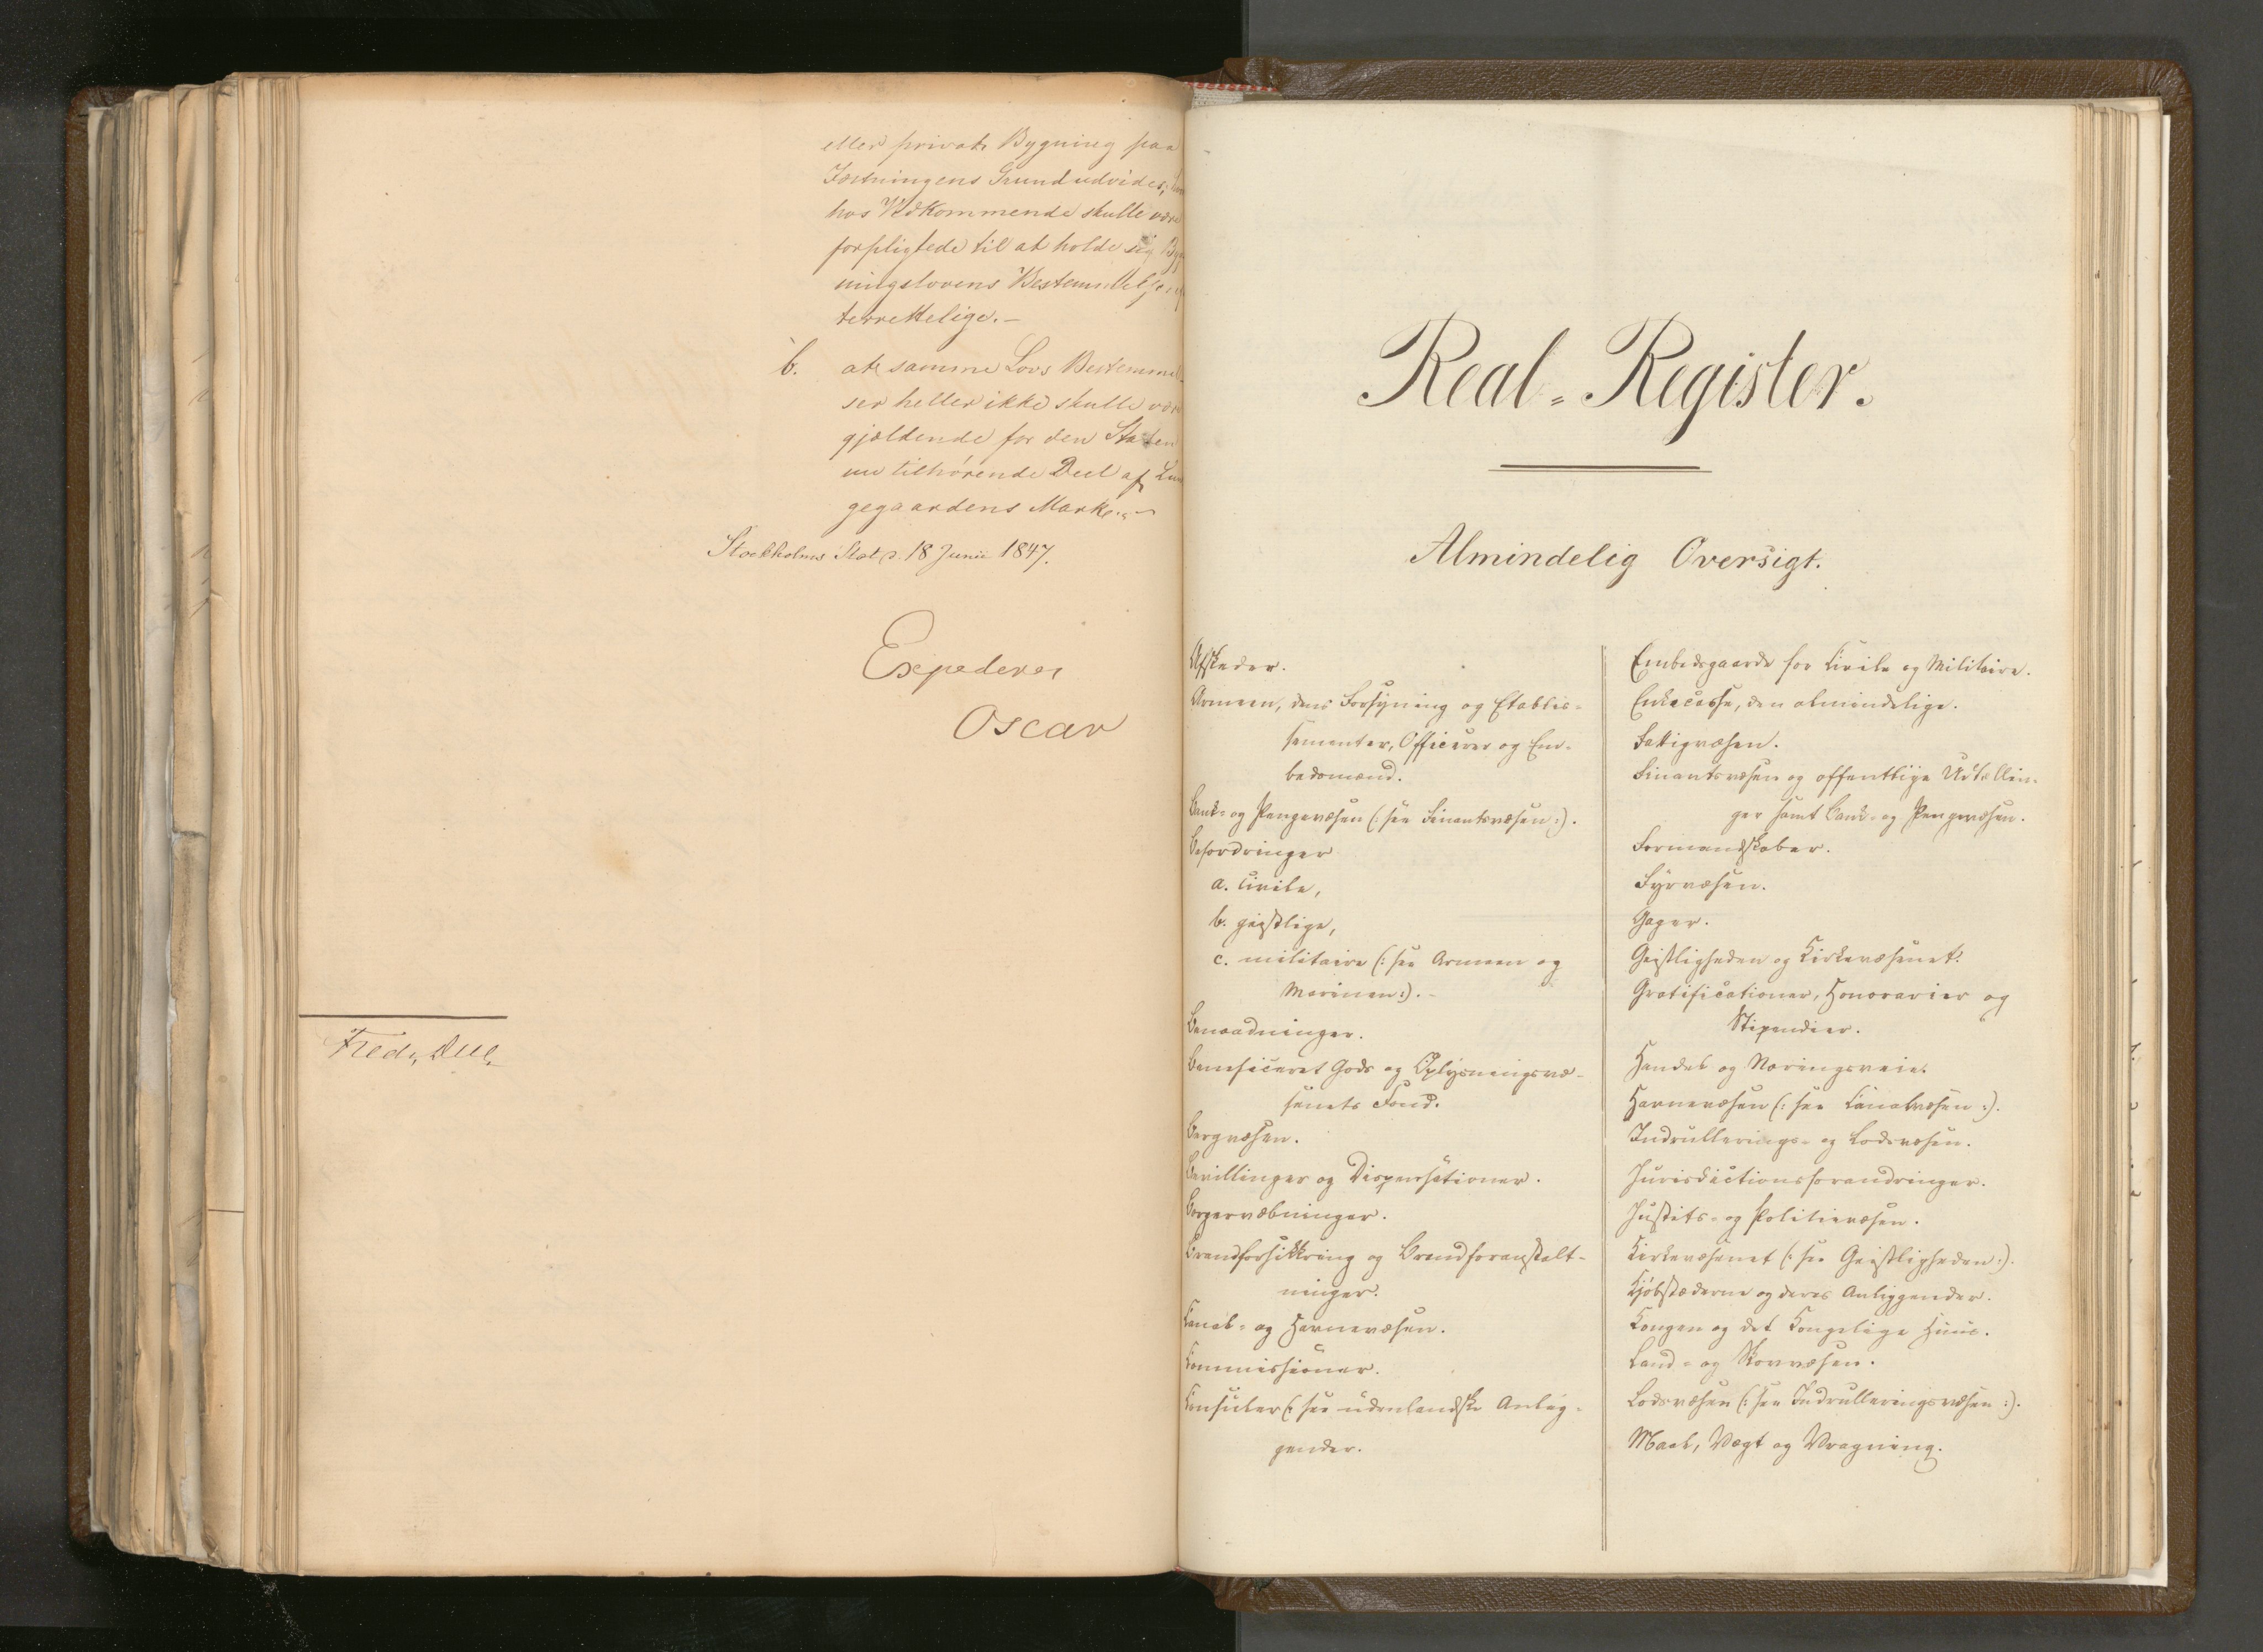 eller privat Bygning paa
Fæstningens Grund udvides;
hos Vedkommende skulle være
forpligtede til at holde sig Byg
ningslovens Bestemmelser ef
terrettelige.—
b. at samme Lovs Bestemmel-
ser heller ikke skulle være
gjældende for den Staten
nu tilhørende Deel af Lun
gegaardens Mark.
Stockholms Slot d. 18 Junii 1847.
Expederes
Oscar
Fredr. Due.
Real-Register.
Almindelig Oversigt.
Afskeder.
Armeen, dens Forsyning og Etablis-
sementer, Officerer og Em-
bedsmænd.
Bank- og Pengevæsen (: see Finantsvæsen :).
Befordringer
a. civile,
b. geistlige,
c. militaire (: see Armeen og
Marinen :).
Benaadninger.
Beneficeret Gods og Oplysningsvæ-
senets Fond.
Bergvæsen.
Bevillinger og Dispensationer.
Borgervæbninger.
Brandforsikkring og Brandforanstalt-
ninger.
Canal- og Havnevæsen.
Commissioner.
Consuler (: see udenlandske Anlig-
gender.
Embedsgaarde for Civile og Militaire.
Enkecasse, den almindelige.
Fattigvæsen.
Finantsvæsen og offentlige Udtællin-
ger samt Bank- og Pengevæsen.
Formandskaber.
Fyrvæsen.
Gager.
Geistligheden og Kirkevæsenet.
Gratificationer, Honorarier og
Stipendier.
Handel og Næringsveie.
Havnevæsen (: see Canalvæsen :).
Indrullerings- og Lodsvæsen.
Jurisdictionsforandringer.
Justits- og Politievæsen.
Kirkevæsenet (: see Geistligheden :).
Kjøbstæderne og deres Anliggender.
Kongen og det Kongelige Huus.
Land- og Skovvæsen.
Lodsvæsen (: see Indrulleringsvæsen :).
Maal, Vægt og Vragning.